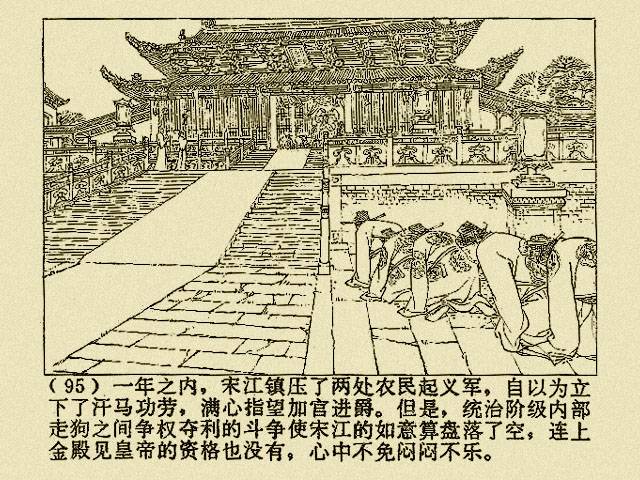 （95）一年之内，宋江镇压了两处农民起义军，自以为立
下了汗马功劳，满心指望加官进爵。但是，统治阶级内部
走狗之间争权夺利的斗争使宋江的如意算盘落了空，连上
金殿见皇帝的资格也没有，心中不免闷闷不乐。